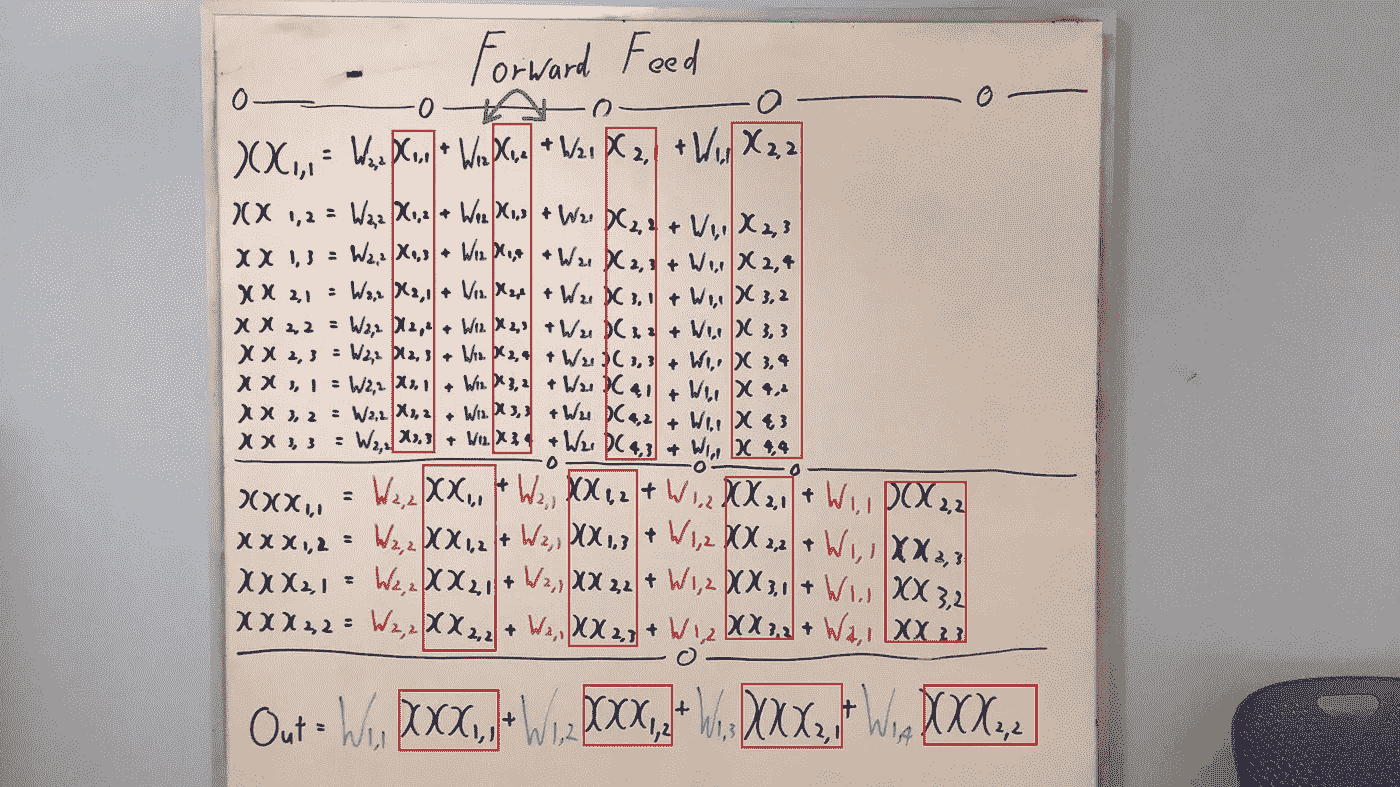 Forward Feed
XX1,1 = W2,2 X1,1 + W12 X1,2 + W21 X2, + W1,1 X2,2
XX 1,2 = W2,2 X1,2 + W12 X1,3 + W21 X2,2 + W1,1 X2,3
XX 1,3 = W2,2 X1,3 + W12 X1,4 + W21 X2,3 + W1,1 X2,4
XX 2,1 = W2,2 X2,1 + W12 X2,2 + W21 X3,1 + W1,1 X3,2
XX 2,2 = W2,2 X2,2 + W12 X2,3 + W21 X3,2 + W1,1 X3,3
XX 2,3 = W2,2 X2,3 + W12 X2,4 + W21 X3,3 + W1,1 X3,4
XX 3,1 = W2,2 X3,1 + W12 X3,2 + W21 X4,1 + W1,1 X4,2
XX 3,2 = W2,2 X3,2 + W12 X3,3 + W21 X4,2 + W1,1 X4,3
XX 3,3 = W2,2 X3,3 + W12 X3,4 + W21 X4,3 + W1,1 X4,4
XXX1,1 = W2,2 XX1,1 + W2,1 XX1,2 + W1,2 XX2,1 + W1,1 XX2,2
XXX1,2 = W2,2 XX1,2 + W2,1 XX1,3 + W1,2 XX2,2 + W1,1 XX2,3
XXX2,1 = W2,2 XX2,1 + W2,1 XX2,2 + W1,2 XX3,1 + W1,1 XX3,2
XXX2,2 = W2,2 XX2,2 + W2,1 XX2,3 + W1,2 XX3,2 + W1,1 XX
Out = W1,1 XXX1,1 + W1,2 XXX1,2 + W1,3 XXX2,1 + W1,4 XXX2,2